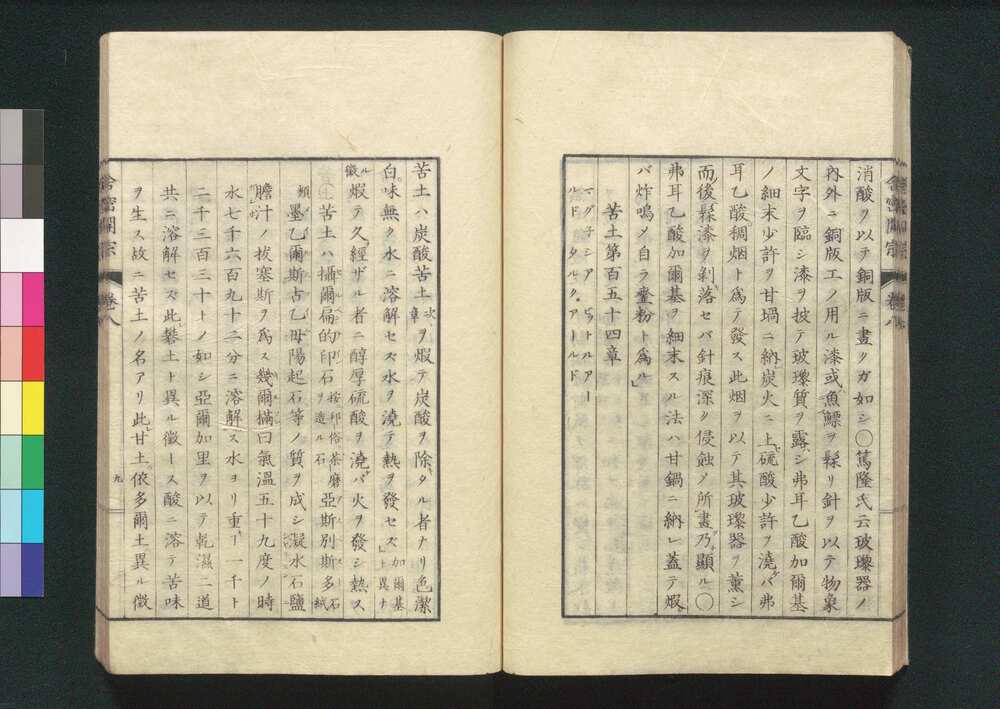 消酸ヲ以テ銅版ニ畫クガ如シ〇篤隆氏云玻瓈器ノ
內外ニ銅版工ノ用ル漆或魚鰾ヲ髹リ針ヲ以テ物象
文字ヲ臨シ漆ヲ披テ玻瓈質ヲ露シ弗耳乙酸加爾基
ノ細末少許ヲ甘堝ニ納炭火ニ上硫酸少許ヲ澆バ弗
耳乙酸稠烟ト爲テ發ス此烟ヲ以テ其玻瓈器ヲ薫シ
而後髹漆ヲ剝落セバ針痕深ク侵蝕ノ所畫乃顯ル〇
弗耳乙酸加爾基ヲ細末スル法ハ甘鍋ニ納レ蓋テ煆
バ炸鳴ノ自ラ虀粉ト爲ル
苦土第百五十四章
マグ子シア ビットルアー
ルド タルク、アールド
苦土ハ炭酸苦土次章ヲ煆テ炭酸ヲ除タル者ナリ色潔
白味無ク水ニ溶解セズ水ヲ澆テ熱ヲ發セズ加爾基ト異ナ
ル徵煆テ久經ザル者ニ醇厚硫酸ヲ澆バ火ヲ發シ熱ス
苦土ハ攝爾扁的印石按印俗茶磨石ヲ造ル石亞斯別斯多石絨
類墨乙爾斯古乙母陽起石等ノ質ヲ成シ凝水石鹽
膽汁ノ拔塞斯ヲ爲ス幾爾攜曰氣溫五十九度ノ時
水七千六百九十二分ニ溶解ス水ヨリ重一千ト
二千三百三十トノ如シ亞爾加里ヲ以テ乾濕二道
共ニ溶解セズ此礬土ト異ル徵一ス酸ニ溶テ苦味
ヲ生ス故ニ苦土ノ名アリ此甘土依多爾土異ル徵
九
舍密開宗 卷八